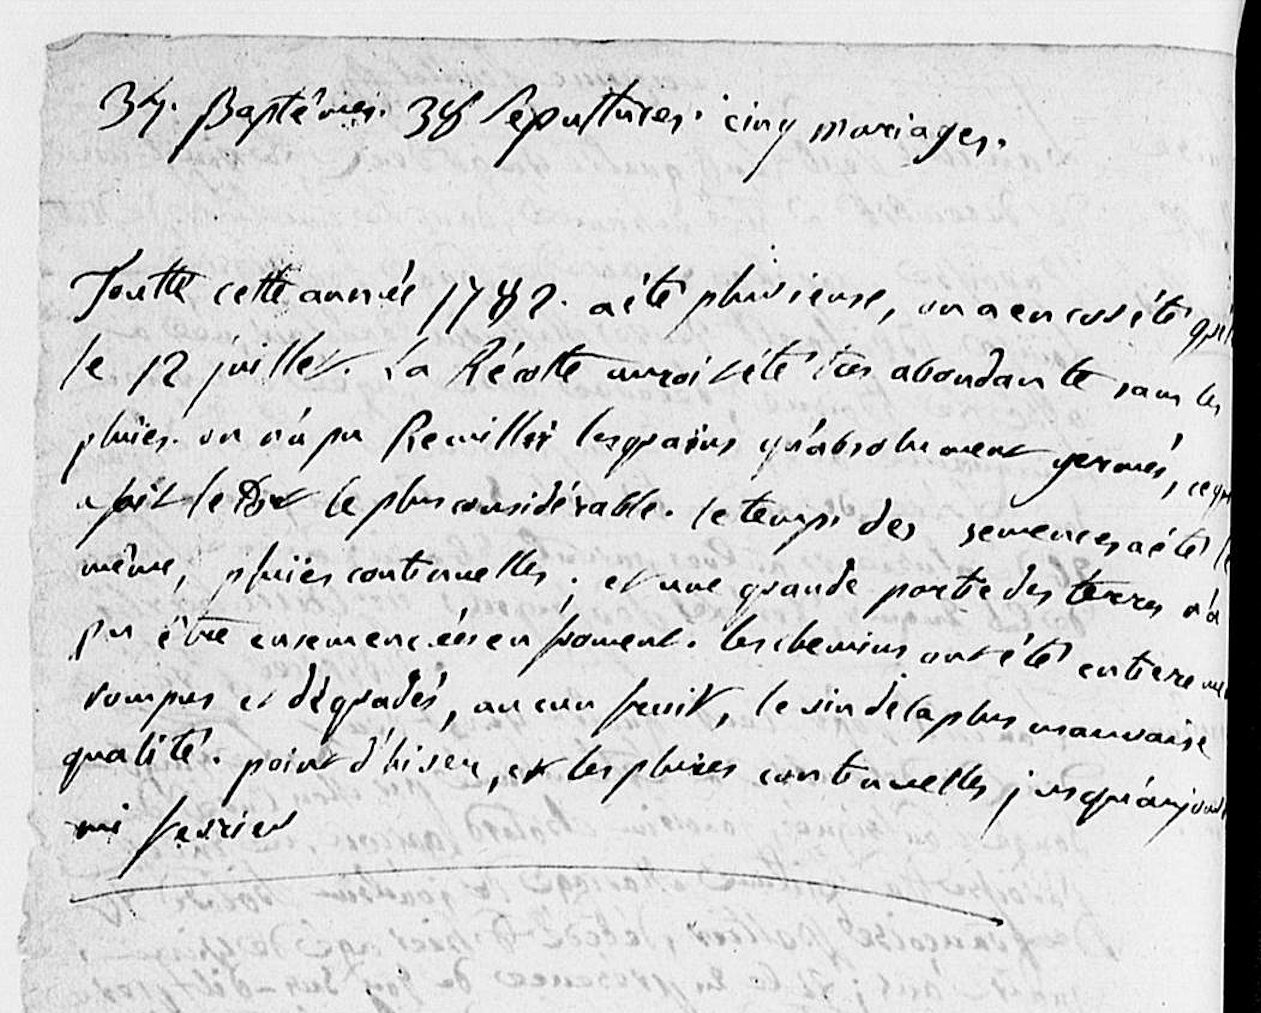 34. Baptémes. 38 Sépultures. cinq mariages.
Toutte cette année 1782. a été pluvieuse, on a encor été grêlé
le 12 juillet. La Récolte auroit été très abondante sans les
pluies. on n'a pu Recuillir les grains qu'absolument germés, ce qui
a fait le tort le plus considérable. le temps des semences a été le
même, pluies continuelles; et une grande partie des terres n'a
pu être ensemencées en froment. les chemins ont été entierement
rompus et dégradés, aucun fruit, le vin de la plus mauvaise
qualité. point d'hiver, et les pluies continuelles jusqu'aujourd'hui
mi fevrier